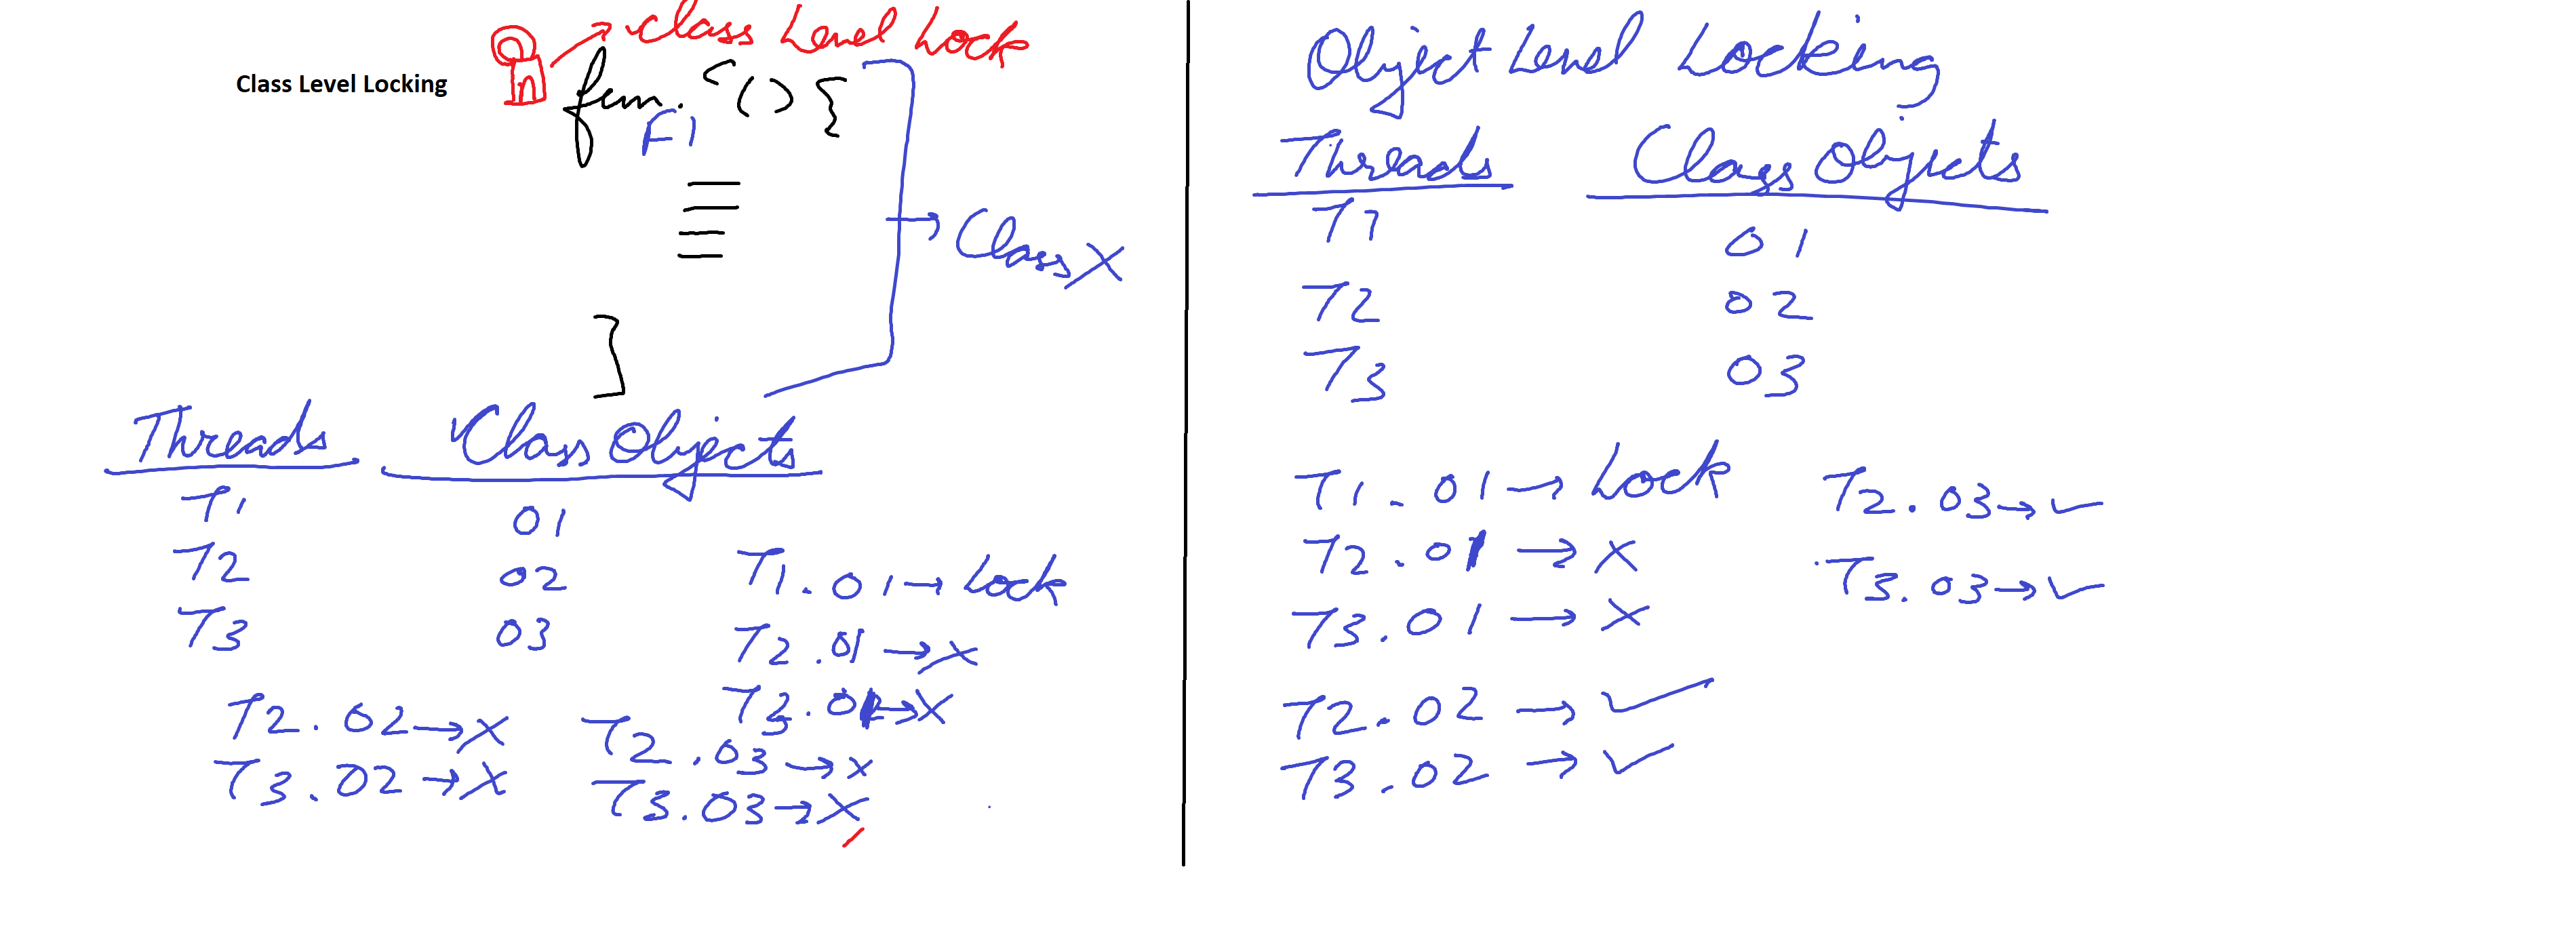 Class Level Locking
class Level Lock
fun. () {
F1
}
Class X
Threads Class Objects
T1 01
T2 02
T3 03
T1.01→ Lock
T2.01→X
T3.01→X
T2.02→X
T3.02→X
T2.03→x
T3.03→X
Object Level Locking
Threads Class Objects
T1 01
T2 02
T3 03
T1.01→ Lock
T2.01→X
T3.01→X
T2.02→✓
T3.02→✓
T2.03→✓
T3.03→✓